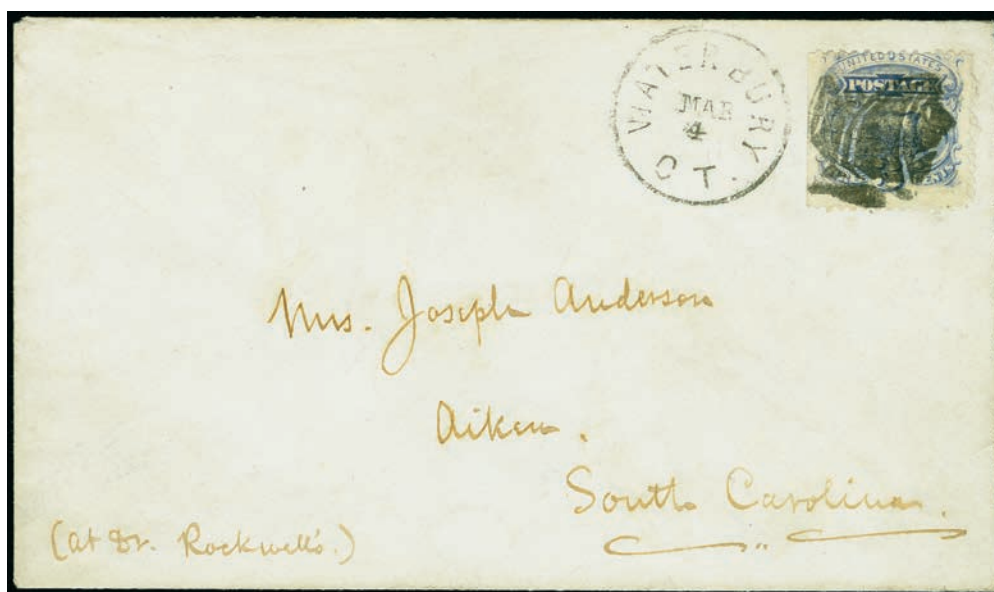 WATERBURY
MAR
4
CT.
UNITED STATES
POSTAGE
CENTS
Mrs. Joseph Anderson
Aiken.
South Carolina.
(at Dr. Rockwell's.)